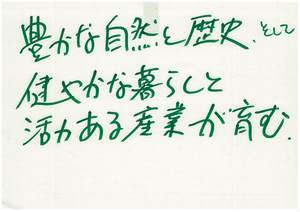 豊かな自然と歴史.そして
健やかな暮らしと
活力ある産業が育む.